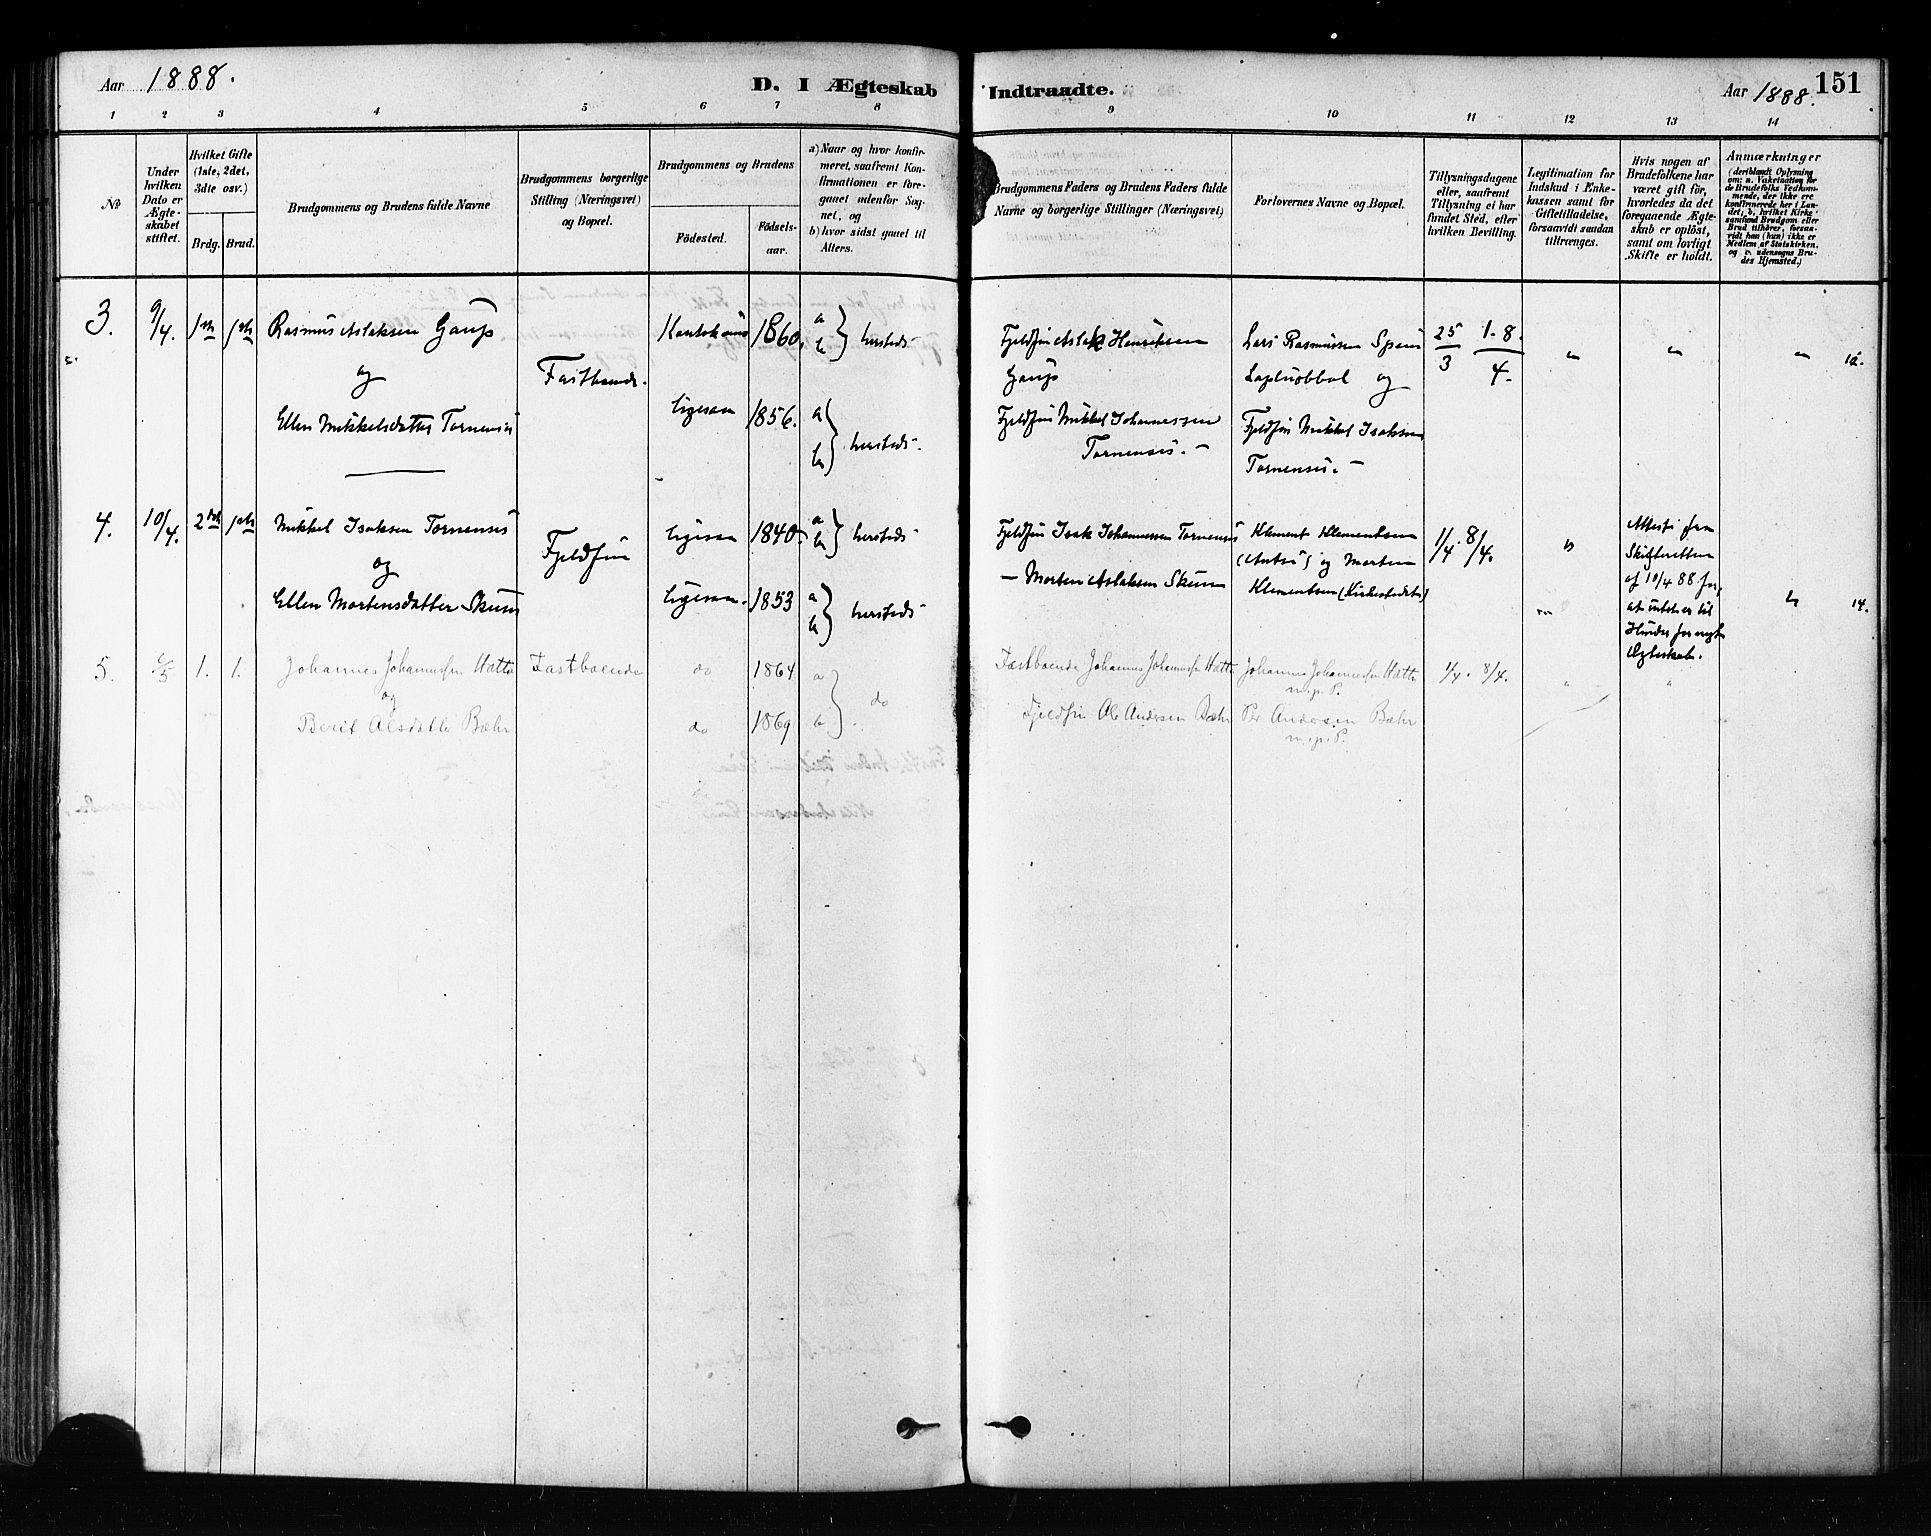 Aar 1888.
D. I Ægteskab Indtraadte.
Aar 1888. 151
1 2 3 4 5 6 7 8 9 10 11 12 13 14
No
Under hvilken Dato er Ægteskabet stiftet.
Hvilket Gifte (1ste, 2det, 3die osv.)
Brdg. Brud.
Brudgommens og Brudens fulde Navne
Brudgommens borgerlige Stilling (Næringsvei) og Bopæl.
Brudgommens og Brudens
Fødested. Fødselsaar.
a) Naar og hvor konfirmeret, saafremt Konfirmationen er foregaaet udenfor Sognet, og
b) hvor sidst gaaet til Alters.
Brudgommens Faders og Brudens Faders fulde Navne og borgerlige Stillinger (Næringsvei)
Forlovernes Navne og Bopæl.
Tillysningsdagene eller, saafremt Tillysning ei har fundet Sted, efter hvilken Bevilling.
Legitimation for Indskud i Enkekassen samt for Giftetilladelse, forsaavidt saadan tiltrænges.
Hvis nogen af Brudefolkene har været gift før, hvorledes da det foregaaende Ægteskab er opløst, samt om lovligt Skifte er holdt.
Anmærkninger (deriblandt Oplysning om: a. Vakcination for de Brudefolks Vedkommende, der ikke ere konfirmerede her i Landet; b. hvilket Kirkesamfund Brudgom eller Brud tilhører, forsaavidt han (hun) ikke er Medlem af Statskirken, og c. udensogns Brudes Hjemsted.)
3. 9/4. 1ste 1ste Rasmus Aslaksen Gaup Kautokeino 1860. a b } hersteds Fjeldfin Aslak Henriksen Lars Rasmussen Spein 25/3 1-8/4. " " " 12.
og Fastboende. Gaup Lapluobbal og
Ellen Mikkelsdatter Tornensis ligesaa 1856. a b } hersteds. Fjeldfin Mikkel Johannessen Fjeldfin Mikkel Isaksen
Tornensis. - Tornensis. -
4. 10/4. 2det 1ste Mikkel Isaksen Tornensis Fjeldfin ligesaa 1840. a b } hersteds Fjeldfin Isak Johannessen Tornensis Klement Klementsen 1/4. 8/4. " Attest fra
og (Autsi) og Morten Skifteretten
Ellen Mortensdatter Skum ligesaa. 1853 a b } hersteds - Morten Aslaksen Skum Klementsen (Kirkestedet) af 10/4 88 for,
at intet er til " 14.
Hinder for nyt
Ægteskab.
5. 6/5 1. 1. Johannes Johannessen Hætta Fastboende do 1864 a Fastboende Johannes Johannessen Hætta Johannes Johannessen Hætta 1/4. 8/4. " "
og } do m.p.P.
Berit Olsdatter Bæhr do 1869 b Fjeldfin Ole Andersen Bæhr Per Andersen Bæhr
m.p.P.